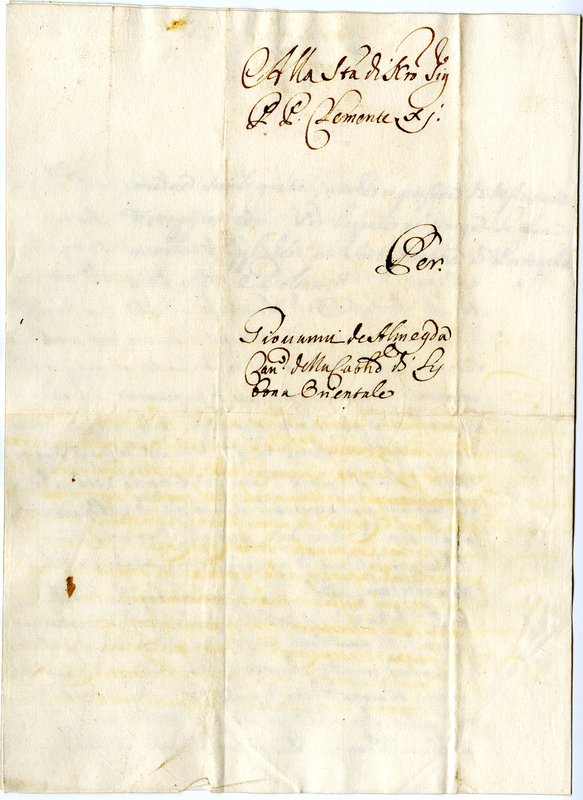 Alla Stà di Nro Sig
P. P. Clemente XI.
Per.
Giouanni de Almeyda
Can.º della Cathdle di Lis
bona Orientale